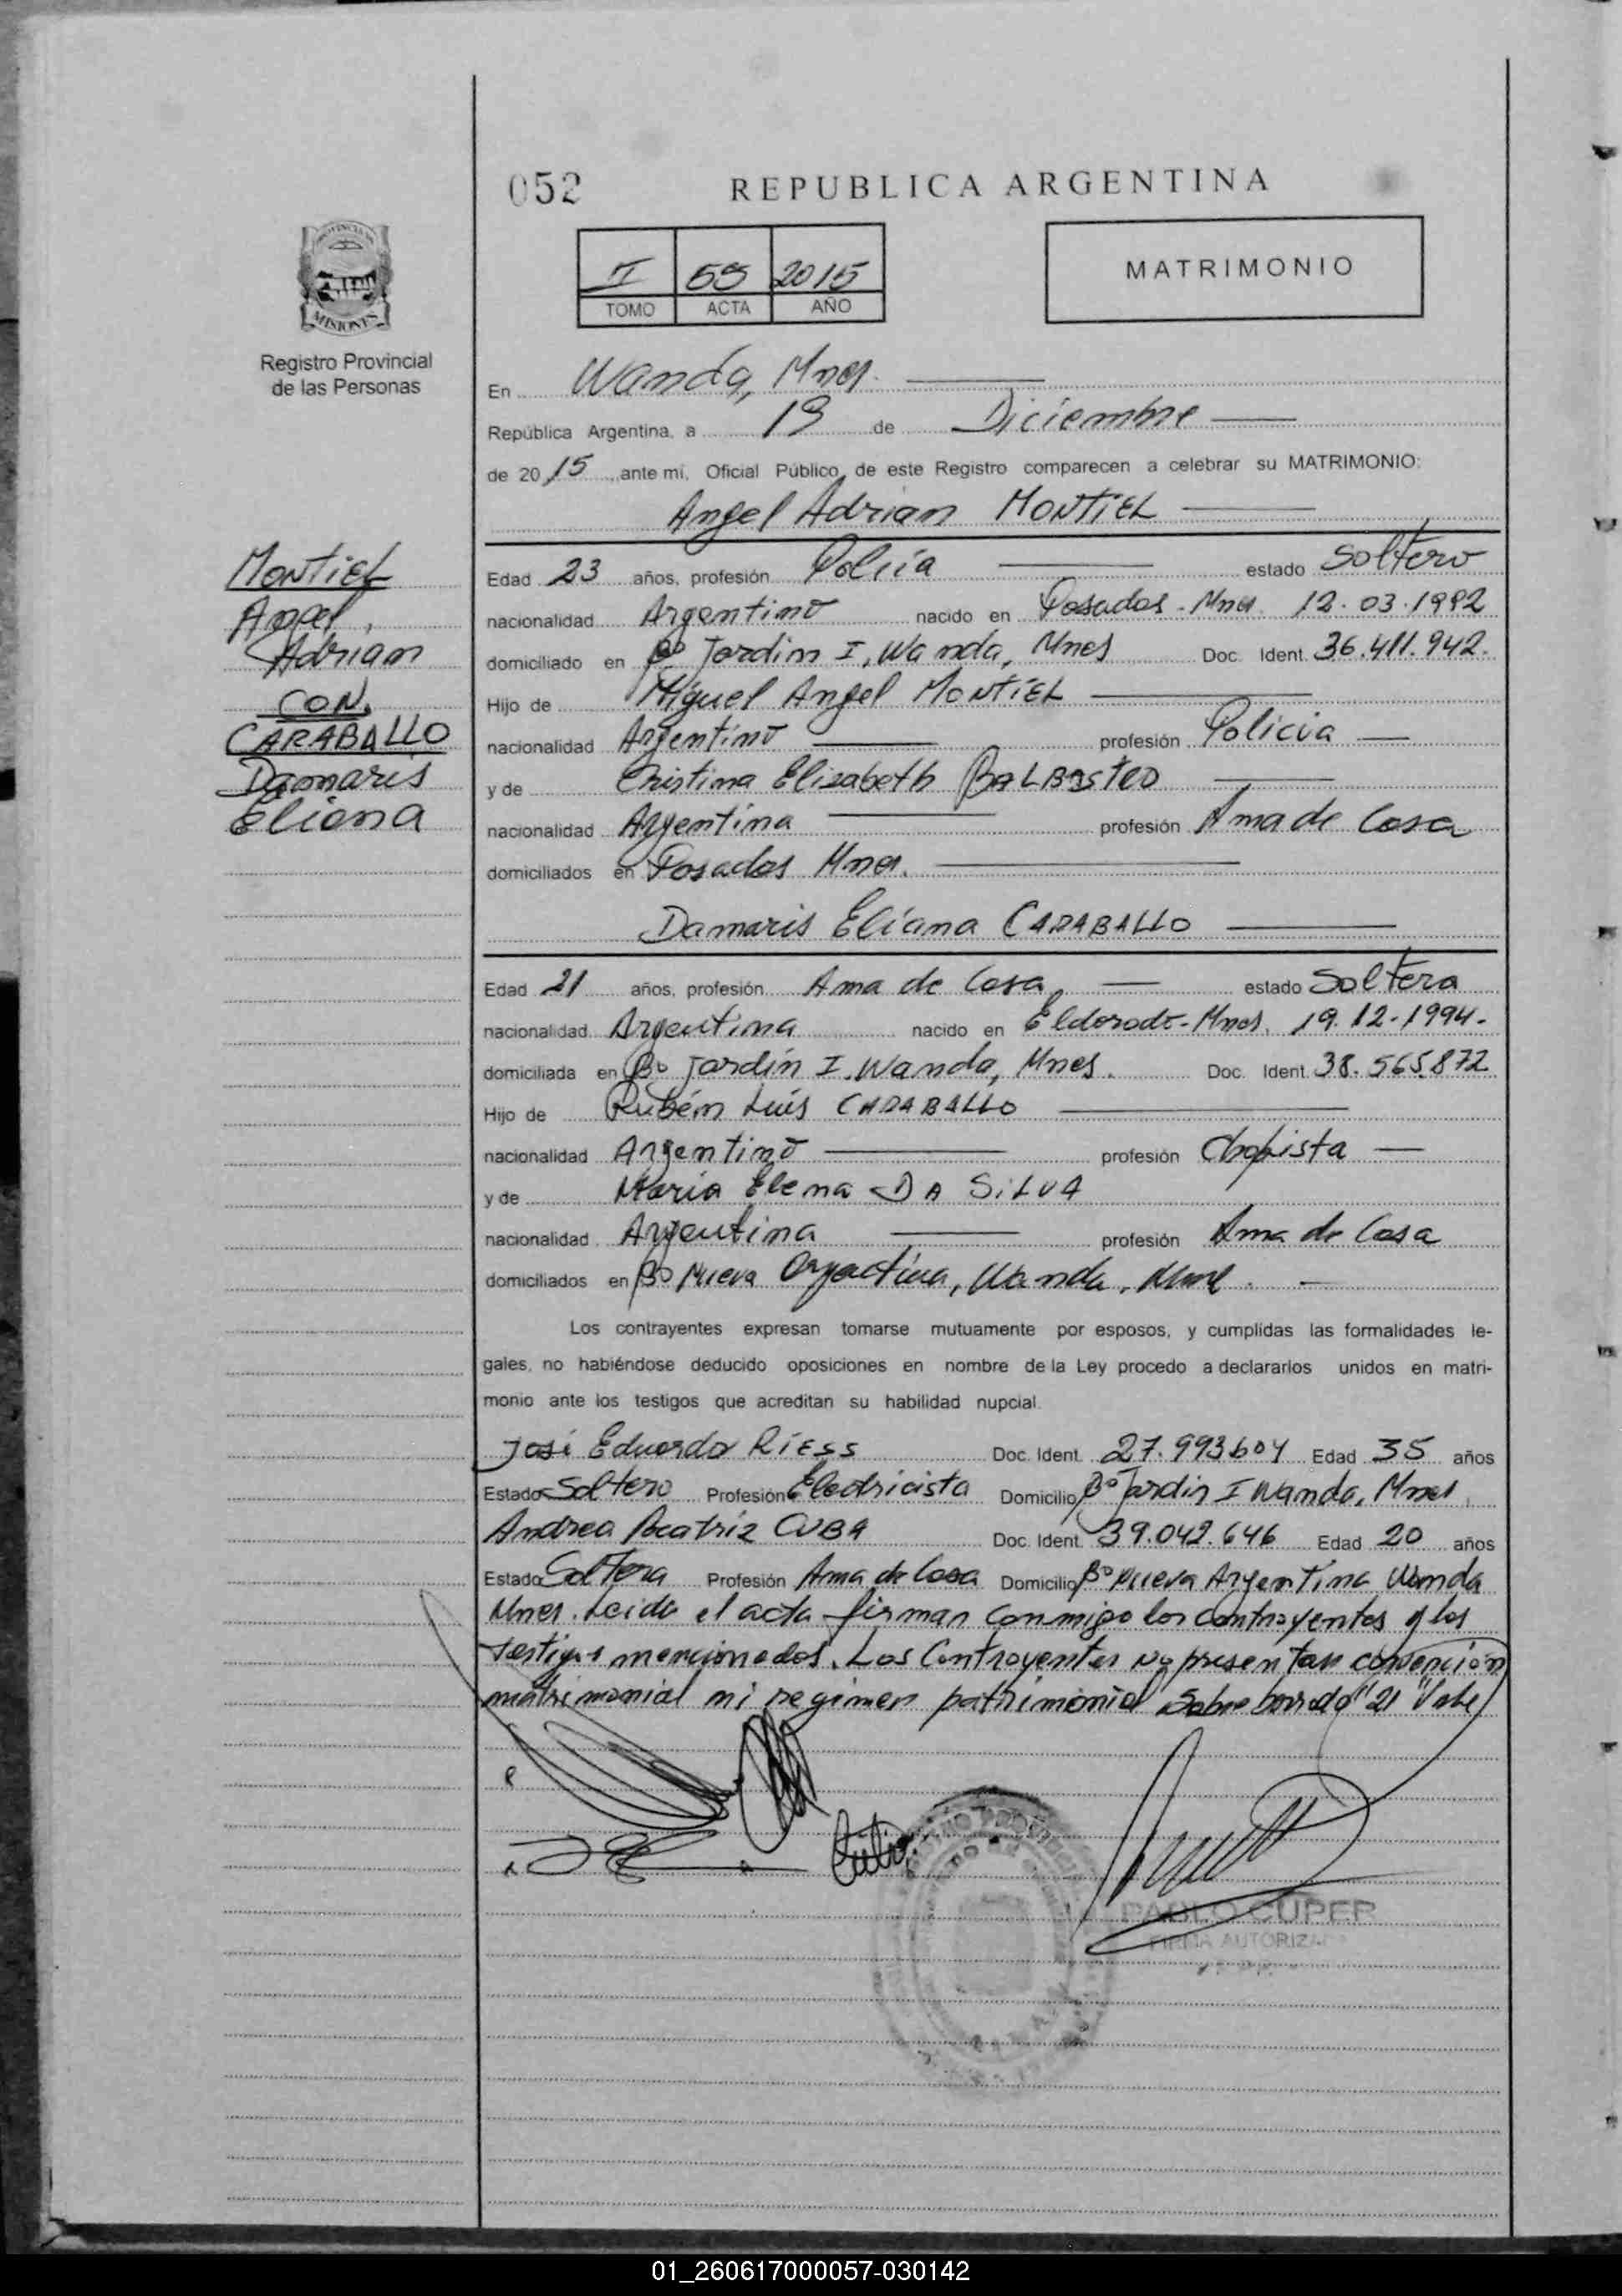 052
REPUBLICA ARGENTINA
PROVINCIA DE
MISIONES
Registro Provincial
de las Personas
I 55 2015
TOMO ACTA AÑO
MATRIMONIO
En Wanda, Mnes.
República Argentina, a 19 de Diciembre
de 2015 ante mí, Oficial Público de este Registro comparecen a celebrar su MATRIMONIO:
Angel Adrian MONTIEL
MONTIEL
Angel,
Adrian
CON
CARABALLO
Damaris
Eliana
Edad 23 años, profesión Policía estado Soltero
nacionalidad Argentino nacido en Posadas - Mnes. 12.03.1992
domiciliado en Bº Jardin I, Wanda, Mnes Doc. Ident. 36.411.942.
Hijo de Miguel Angel MONTIEL
nacionalidad Argentino profesión Policia
y de Cristina Elizabeth
nacionalidad Argentina profesión Ama de Casa
domiciliados en Posadas Mnes.
Damaris Eliana CARABALLO
Edad 21 años, profesión Ama de Casa estado Soltera
nacionalidad Argentina nacido en Eldorado - Mnes. 19.12.1994.
domiciliada en Bº Jardín I, Wanda, Mnes. Doc. Ident. 38.565.872
Hijo de Rubém Luis CARABALLO
nacionalidad Argentino profesión Chapista
y de María Elena DA SILVA
nacionalidad Argentina profesión Ama de Casa
domiciliados en Bº Nueva Argentina, Wanda, Mnes.
Los contrayentes expresan tomarse mutuamente por esposos, y cumplidas las formalidades le-
gales, no habiéndose deducido oposiciones en nombre de la Ley procedo a declararlos unidos en matri-
monio ante los testigos que acreditan su habilidad nupcial.
José Eduardo RIESS Doc. Ident. 27.993604 Edad 35 años
Estado Soltero Profesión Electricista Domicilio Bº Jardin I Wanda, Mnes
Andrea Beatriz CUBA Doc. Ident. 39.042.646 Edad 20 años
Estado Soltera Profesión Ama de Casa Domicilio Bº Nueva Argentina Wanda
Mnes. Leida el acta firman conmigo los contrayentes y los
testigos mencionados. Los Contrayentes no presentan convención
matrimonial ni regimen patrimonial Sobre borrado "21" Vale
PABLO CUPER
FIRMA AUTORIZADA
01_260617000057-030142